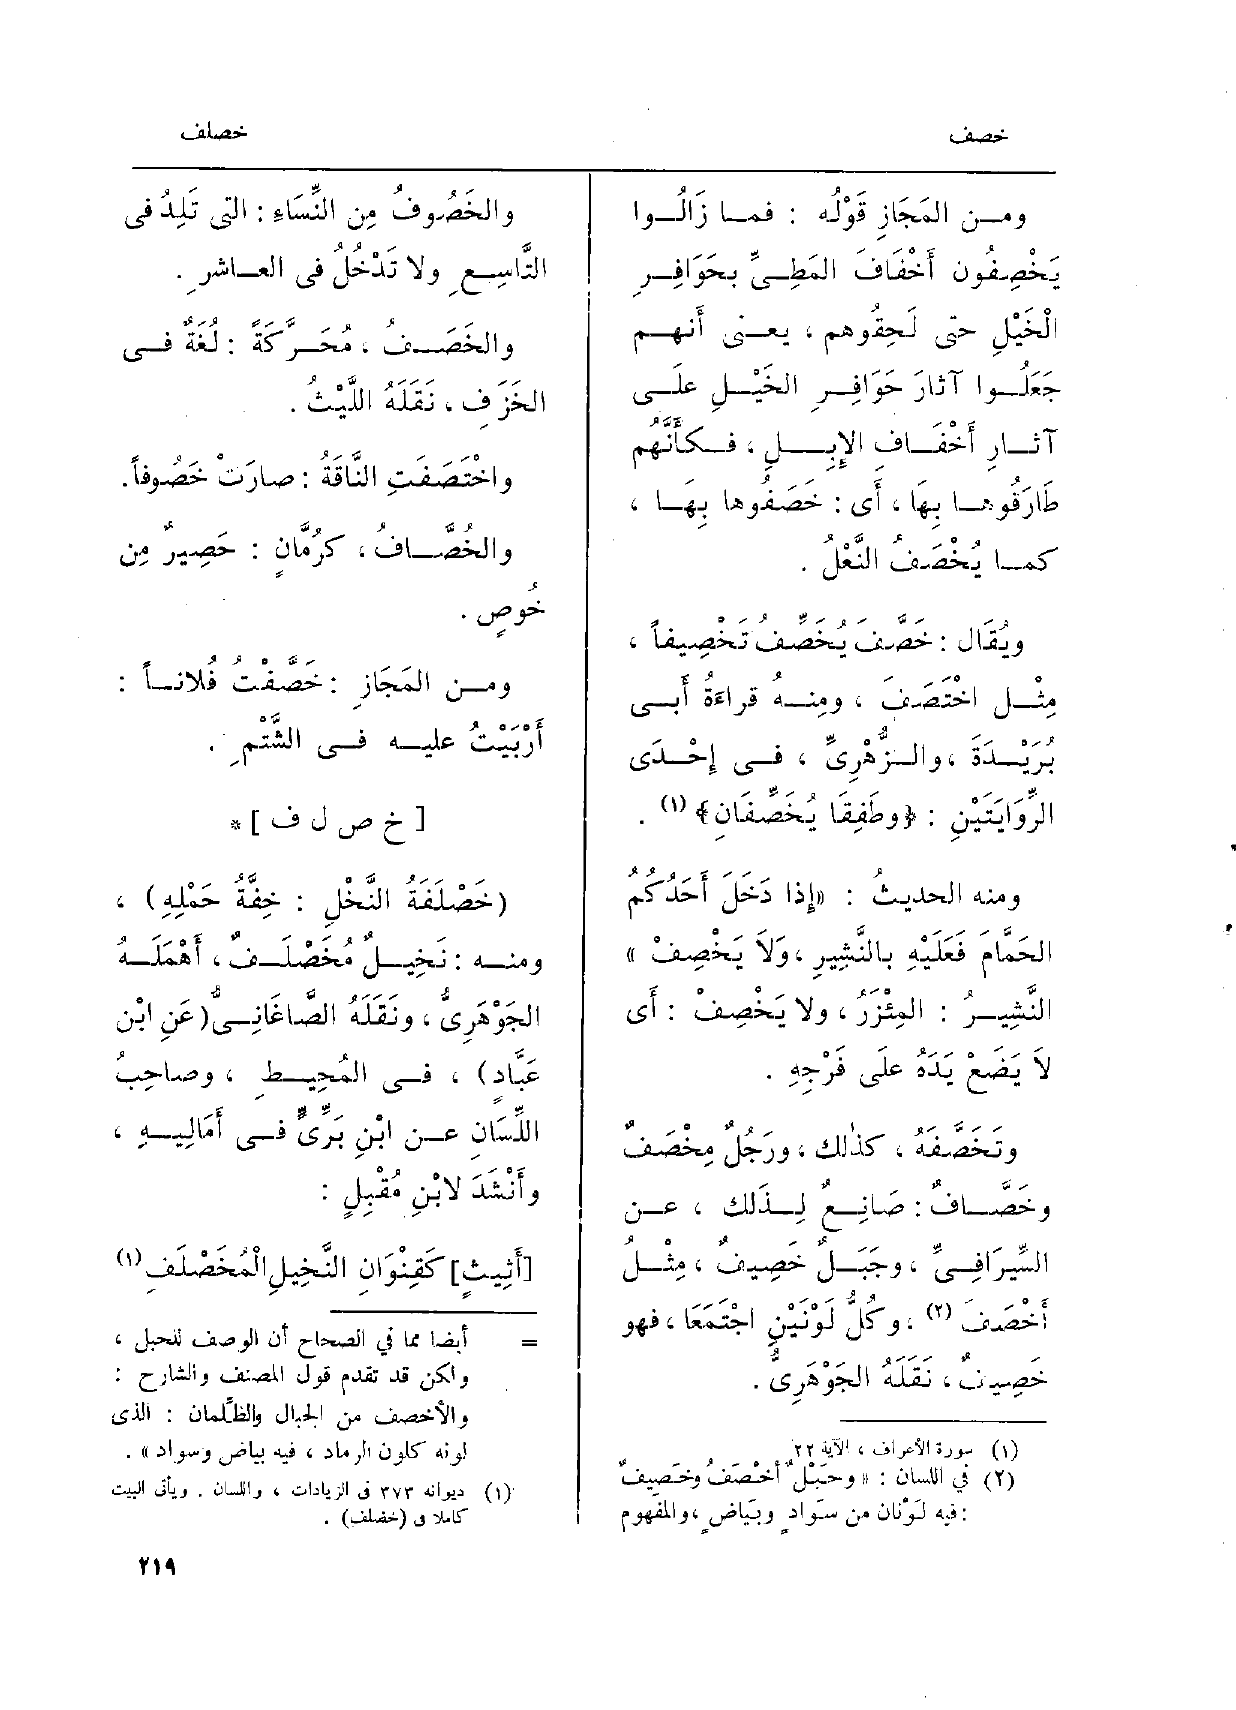 خصف
خصلف
ومـن المَجَازِ قَوْلُه : فمـا زَالُـوا
يَخْصِفُون أَخْفَافَ المَطِـيِّ بحَوَافِـرِ
الْخَيْلِ حتى لَحِقُوهم ، يعـنى أَنهـم
جَعَلُـوا آثارَ حَوَافِـرِ الخَيْـلِ علَـى
آثـارِ أَخْفَـافِ الإِبـلِ ، فـكأَنَّهُم
طَارَقُوهـا بِهَـا ، أَى : خَصَفُوها بِهَـا ،
كمـا يُخْصَـفُ النَّعْلُ .
ويُقَال : خَصَّـفَ يُخَصِّـفُ تَخْصِـيفاً ،
مِثْـل اخْتَصَـفَ ، ومِنْـه قراءَةُ أَبـى
بُرَيْـدَةَ ، والـزُّهْرِىِّ ، فـى إِحْـدَى
الرِّوَايَتَيْنِ : ﴿وطَفِقَا يُخَصِّفَانِ﴾ (١) .
ومنه الحديثُ : «إِذا دَخَلَ أَحَدُكُمُ
الحَمَّام فَعَلَيْهِ بالنَّشِيرِ ، وَلاَ يَخْصِفْ»
النَّشِيـرُ : المِئْزَرُ ، ولا يَخْصِفْ : أَى
لاَ يَضَعْ يَدَهُ على فَرْجِهِ .
وتَخَصَّفَهُ ، كذٰلك ، ورَجُلٌ مِخْصَفٌ
وخَصَّـافٌ : صَانِـعٌ لِـذَلك ، عـن
السِّيرَافِـىِّ ، وجَبَـلٌ خَصِيفٌ ، مِثْـلُ
أَخْصَـفَ (٢) ، وكُلُّ لَوْنَيْنِ اجْتَمَعَا ، فهو
خَصِيفٌ ، نَقَلَهُ الجَوْهَرِىُّ .
(١) سورة الأعراف ، الآية ٢٢
(٢) في اللسان : « وحَبْلٌ أخْصَفُ وخَصِيفٌ
: فيه لَوْنان من سَوادٍ وبَياضٍ ، والمفهوم
والخَصُوفُ مِن النِّسَاءِ : التى تَلِدُ فى
التَّاسِـعِ ولا تَدْخُلُ فى العـاشرِ .
والخَصَـفُ ، مُحَـرَّكَةً : لُغَةٌ فـى
الخَزَفِ ، نَقَلَهُ اللَّيْثُ .
واخْتَصَفَتِ النَّاقَةُ : صارَتْ خَصُوفاً .
والخُصَّـافُ ، كرُمَّانٍ : حَصِيرٌ مِن
خُوصٍ .
ومـن المَجَازِ : خَصَّفْتُ فُلاناً :
أَرْبَيْتُ عليـه فـى الشَّتْمِ .
[ خ ص ل ف ] *
(خَصْلَفَةُ النَّخْلِ : خِفَّةُ حَمْلِهِ) ،
ومنـه : نَخِيـلٌ مُخَصْلَـفٌ ، أَهْمَلَـهُ
الجَوْهَرِىُّ ، ونَقَلَهُ الصَّاغَانِـىُّ (عَنِ ابْن
عَبَّادٍ) ، فـى المُحِيـطِ ، وصاحِبُ
اللِّسَانِ عـن ابْنِ بَرِّىٍّ فـى أَمَالِيـهِ ،
وأَنْشَدَ لاِبْنِ مُقْبِلٍ :
[أَثِيثٍ] كَقِنْوَانِ النَّخِيلِ الْمُخَصْلَفِ (١)
= أيضا مما في الصحاح أن الوصف للحبل ،
ولكن قد تقدم قول المصنف والشارح :
والأخصف من الجبال والظَّلمان : الذى
لونه كلون الرماد ، فيه بياض وسواد » .
(١) ديوانه ٣٧٣ فى الزيادات ، واللسان . ويأتى البيت
كاملا فى (خضلف) .
٢١٩